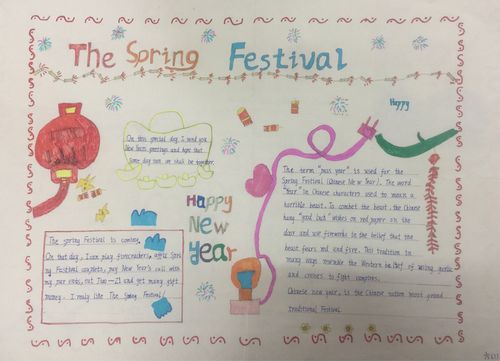 The Spring Festival
Happy
On this special day, I send you
New Year's greetings and hope that
some day soon we shall be together.
Happy
New
Year
The term "pass year" is used for the
Spring Festival (Chinese New Year). The word
"Year" in Chinese characters used to mean a
horrible beast. To combat the beast, the Chinese
hang "good luck" wishes on red paper on the
door and use fireworks in the belief that the
beast fears red and fire. This tradition in
many ways resemble the Western belief of using garlic
and crosses to fight vampires.
Chinese new year, is the Chinese nation most grand
traditional Festival.
The spring Festival is coming
On that day, I can play firecrackers, affix Spring
Festival couplets, pay New Year's call with
my parents, eat and get many gift
money. I really like The Spring Festival!